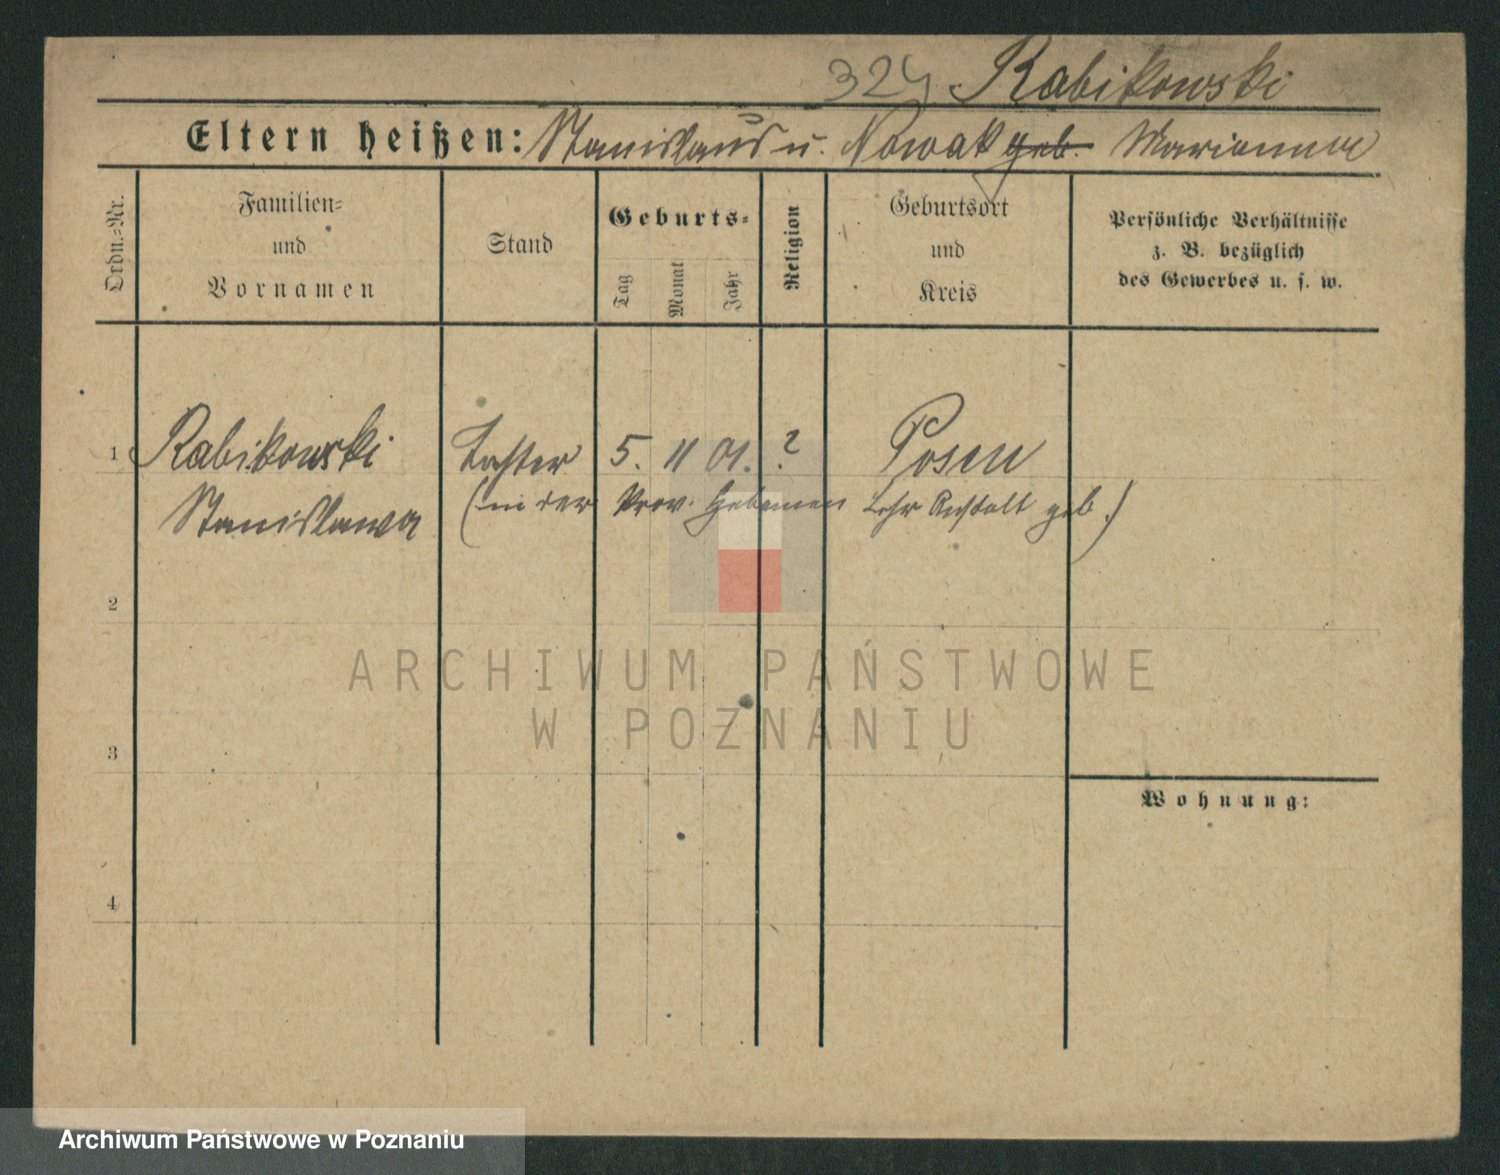 324 Rabikowski
Eltern heißen: Stanislaus u. Nowak geb. Marianna
Ordn.-Nr.
Familien-
und
Vornamen
Stand
Geburts-
Tag
Monat
Jahr
Religion
Geburtsort
und
Kreis
Persönliche Verhältnisse
z. B. bezüglich
des Gewerbes u. s. w.
1 Rabikowski Tochter 5. 11 01. ? Posen
Stanislawa (in der Prov. Hebamen Lehr Anstalt geb.)
2
ARCHIWUM PAŃSTWOWE
W POZNANIU
3
Wohnung:
4
Archiwum Państwowe w Poznaniu